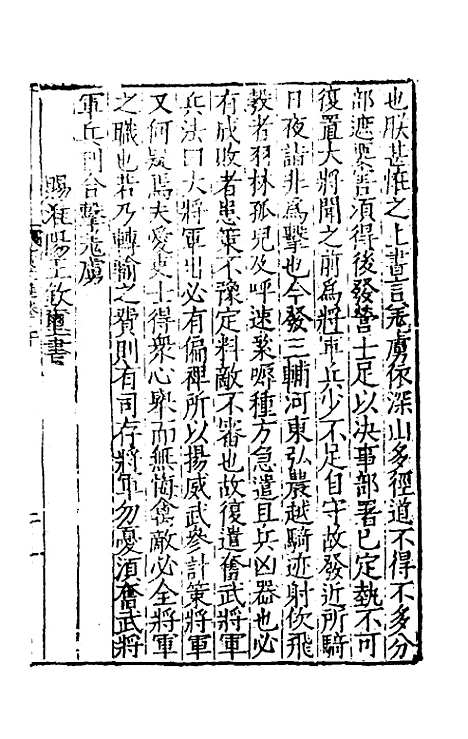 也朕甚怪之上書言羌虜依深山多徑道不得不多分
部遮要害須得後發營士足以决事部署已定埶不可
復置大將聞之前為將軍兵少不足自守故發近所騎
日夜詣非為擊也今發三輔河東弘農越騎迹射佽飛
彀者羽林孤兒及呼速絫嗕種方急遣且兵凶器也必
有成敗者患策不豫定料敵不審也故復遣奮武將軍
兵法曰大將軍出必有偏裨所以揚威武參計策將軍
又何疑焉夫愛吏士得衆心舉而無悔禽敵必全將軍
之職也若乃轉輸之費則有司存將軍勿憂須奮武將
軍兵到合擊羌虜
賜淮陽王欽璽書